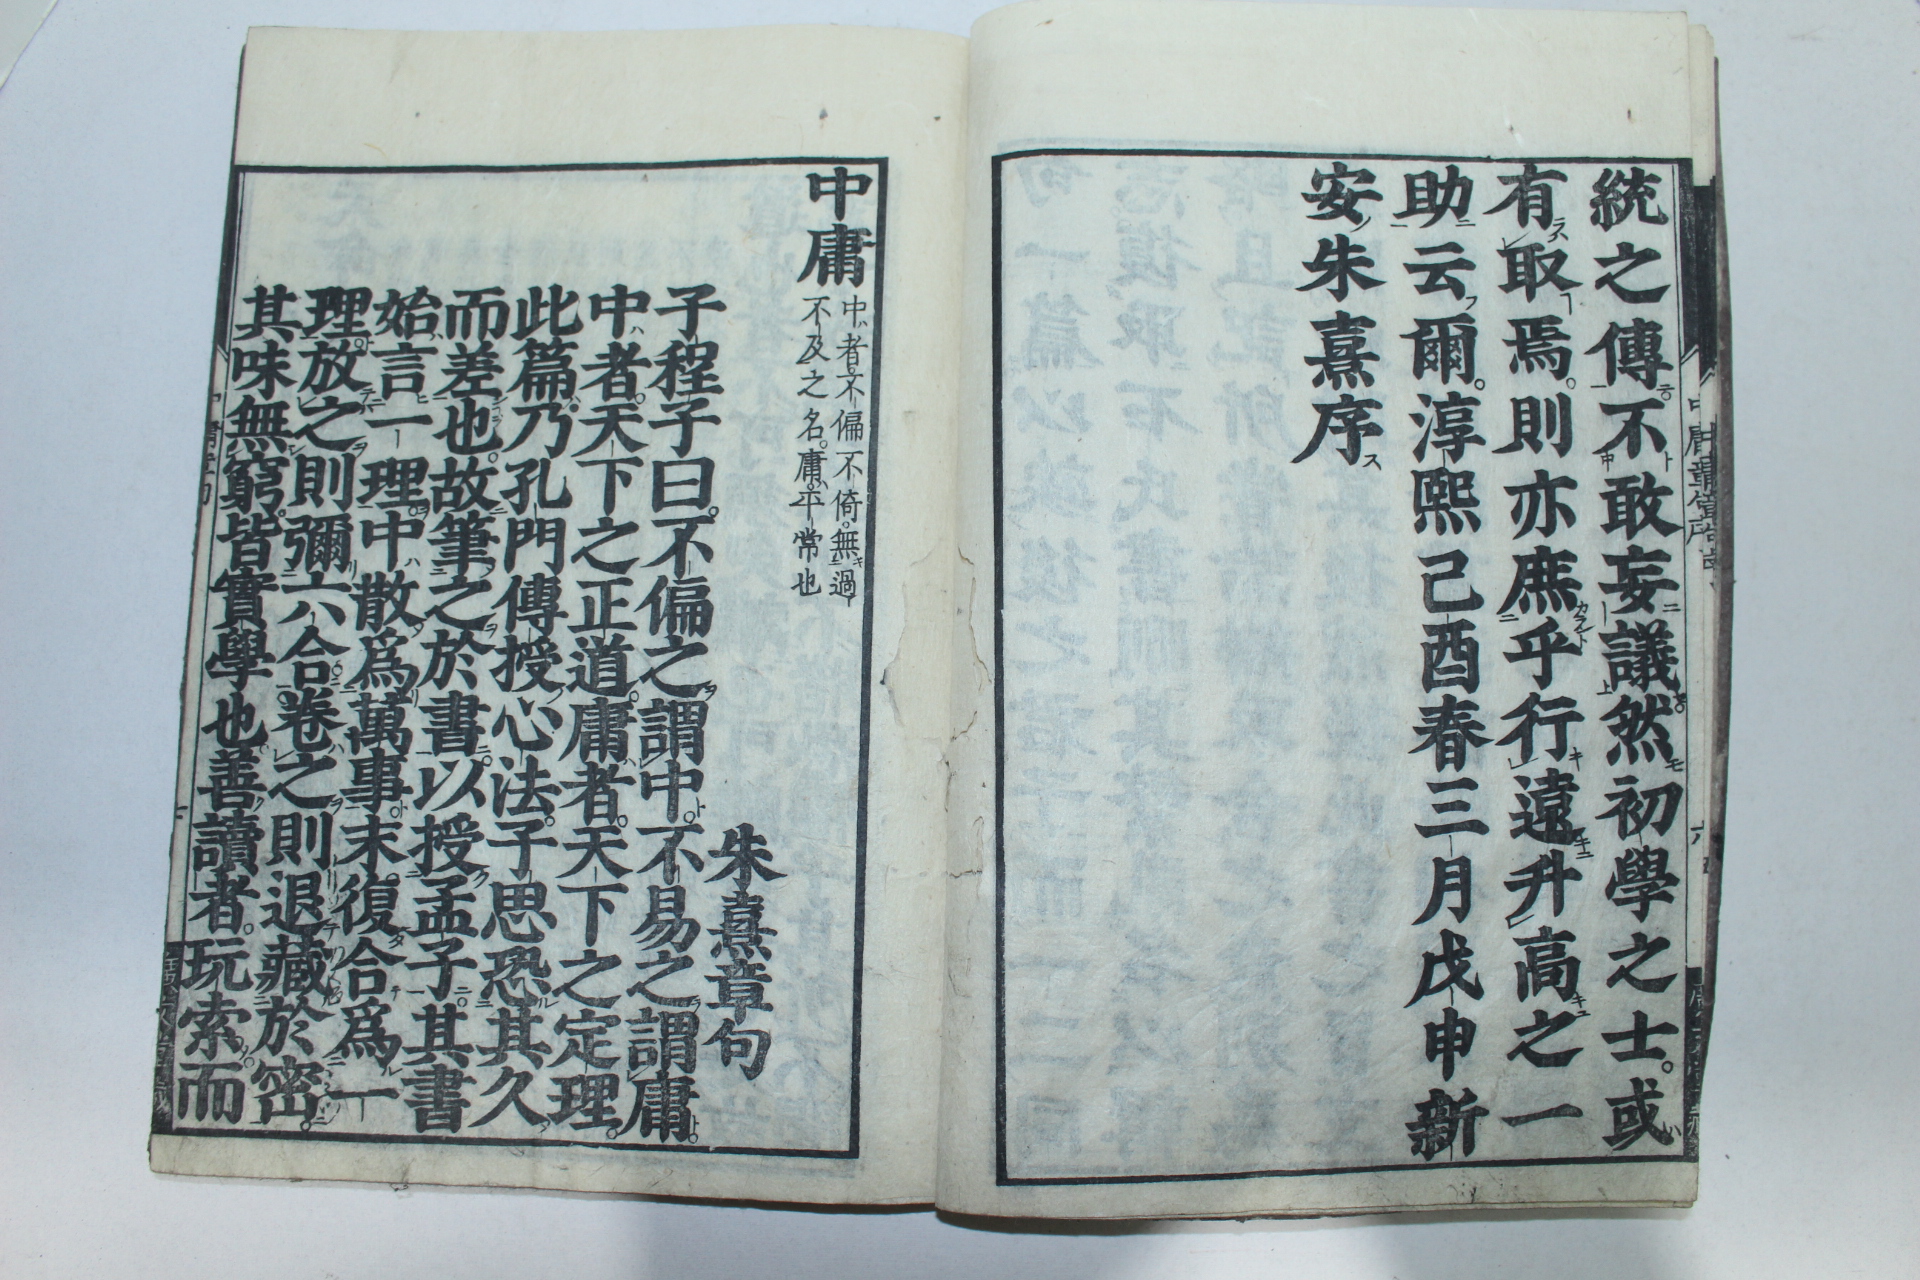 統之傳不敢妄議然初學之士或
有取焉則亦庶乎行遠升高之一
助云爾淳熙己酉春三月戊申新
安朱熹序
中庸
中者不偏不倚無過
不及之名庸平常也
朱熹章句
子程子曰不偏之謂中不易之謂庸
中者天下之正道庸者天下之定理
此篇乃孔門傳授心法子思恐其久
而差也故筆之於書以授孟子其書
始言一理中散爲萬事末復合爲一
理放之則彌六合卷之則退藏於密
其味無窮皆實學也善讀者玩索而